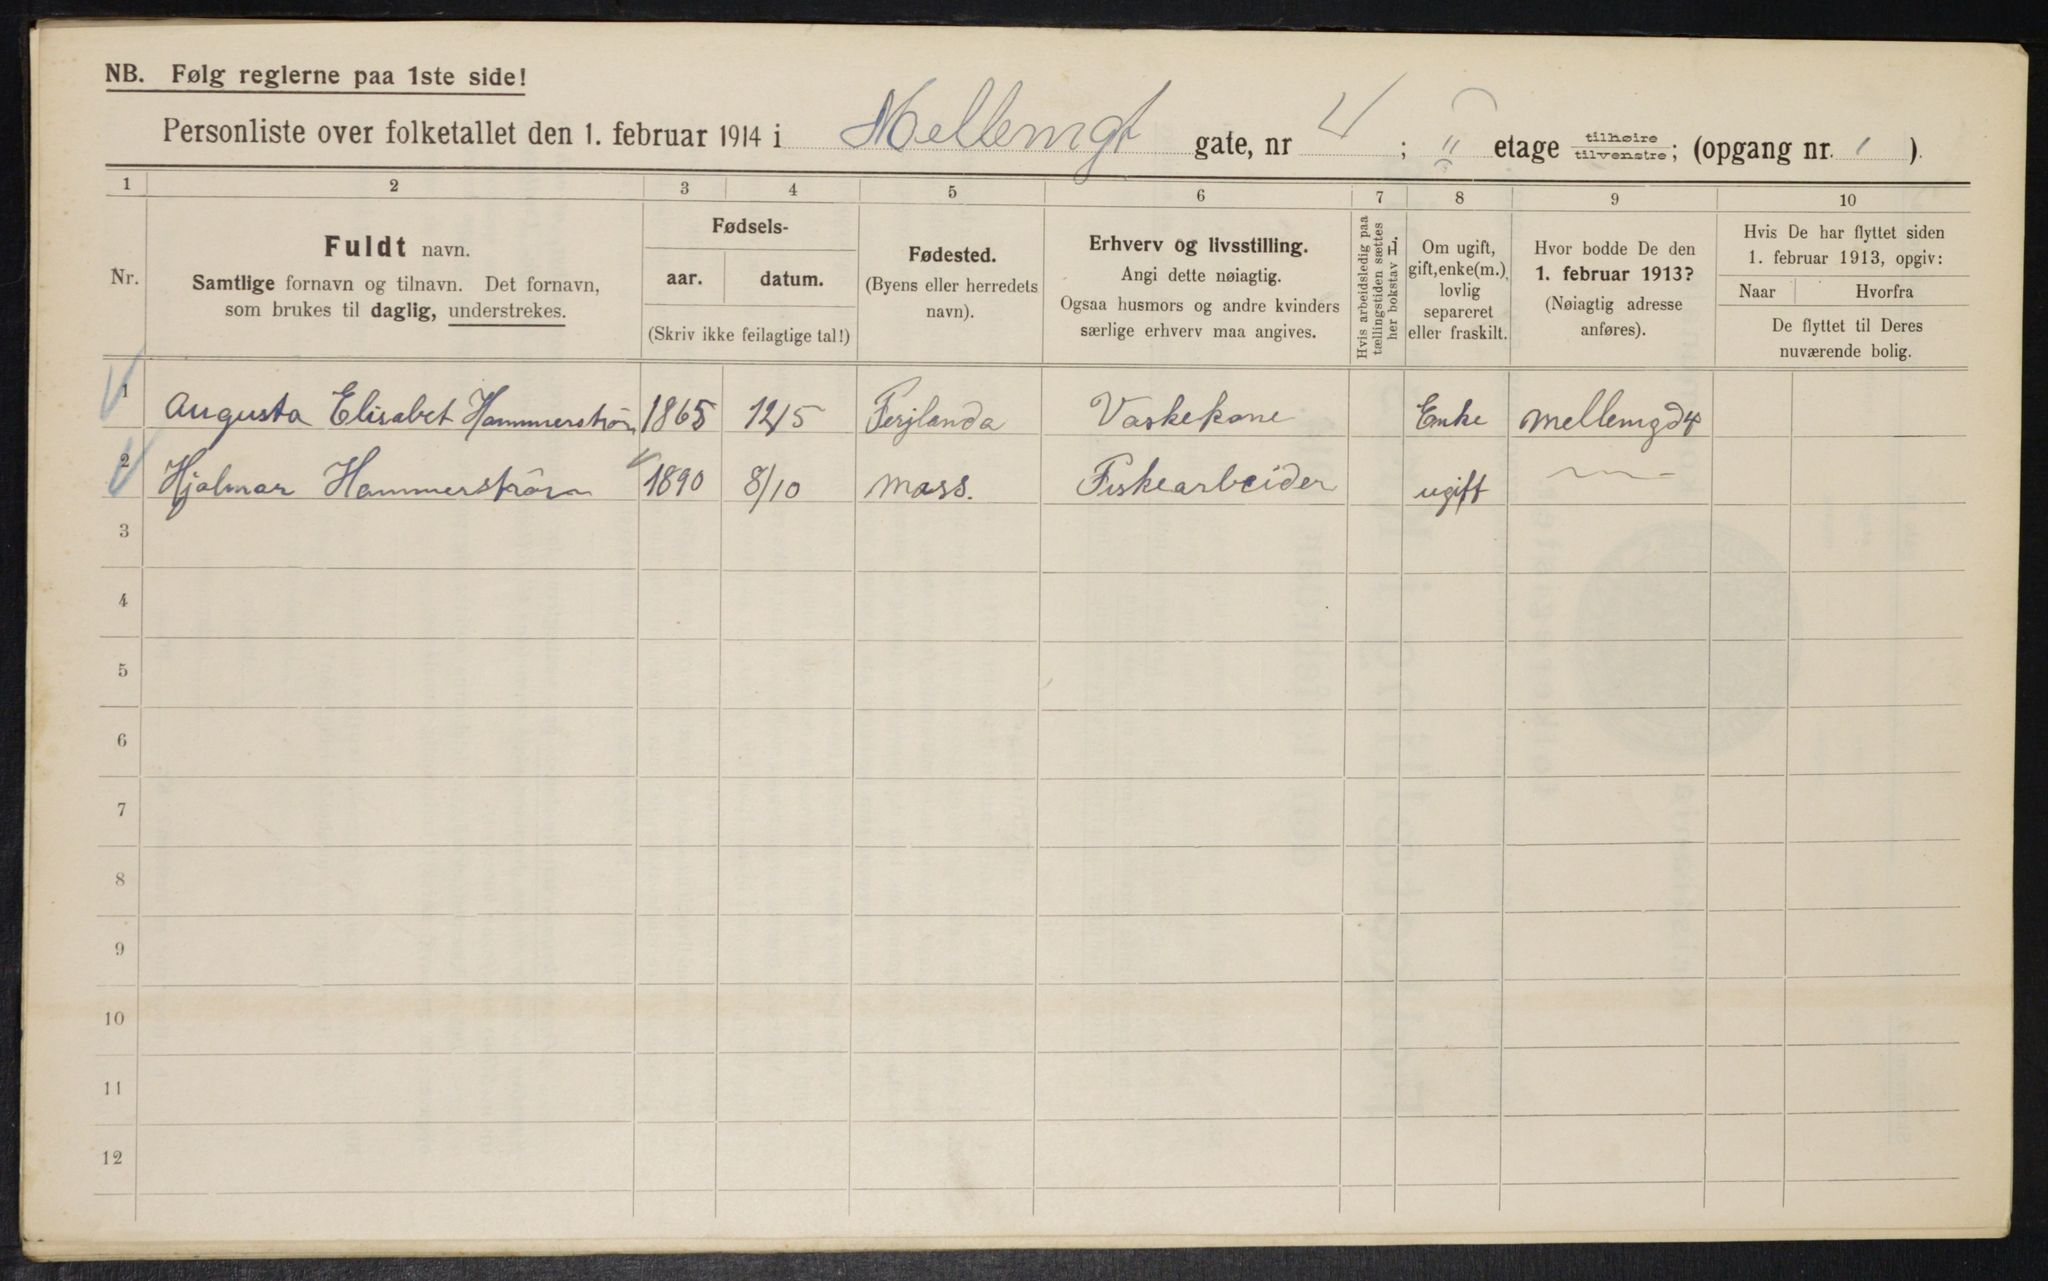 NB. Følg reglerne paa 1ste side!
Personliste over folketallet den 1. februar 1914 i Mellemgt gate, nr 4; " etage tilhøire tilvenstre; (opgang nr. 1).
1 2 3 4 5 6 7 8 9 10
Nr.
Fuldt navn.
Samtlige fornavn og tilnavn. Det fornavn,
som brukes til daglig, understrekes.
Fødsels-
aar. datum.
(Skriv ikke feilagtige tal!)
Fødested.
(Byens eller herredets
navn).
Erhverv og livsstilling.
Angi dette nøiagtig.
Ogsaa husmors og andre kvinders
særlige erhverv maa angives.
Hvis arbeidsledig paa
tællingstiden sættes
her bokstav H.
Om ugift,
gift, enke(m.),
lovlig
separeret
eller fraskilt.
Hvor bodde De den
1. februar 1913?
(Nøiagtig adresse
anføres).
Hvis De har flyttet siden
1. februar 1913, opgiv:
Naar Hvorfra
De flyttet til Deres
nuværende bolig.
1 Augusta Elisabet Hammerström 1865 12/5 Vaskekone Enke Mellemgd 4
2 Hjalmar Hammerström 1890 8/10 Mass. Fiskearbeider ugift
3
4
5
6
7
8
9
10
11
12